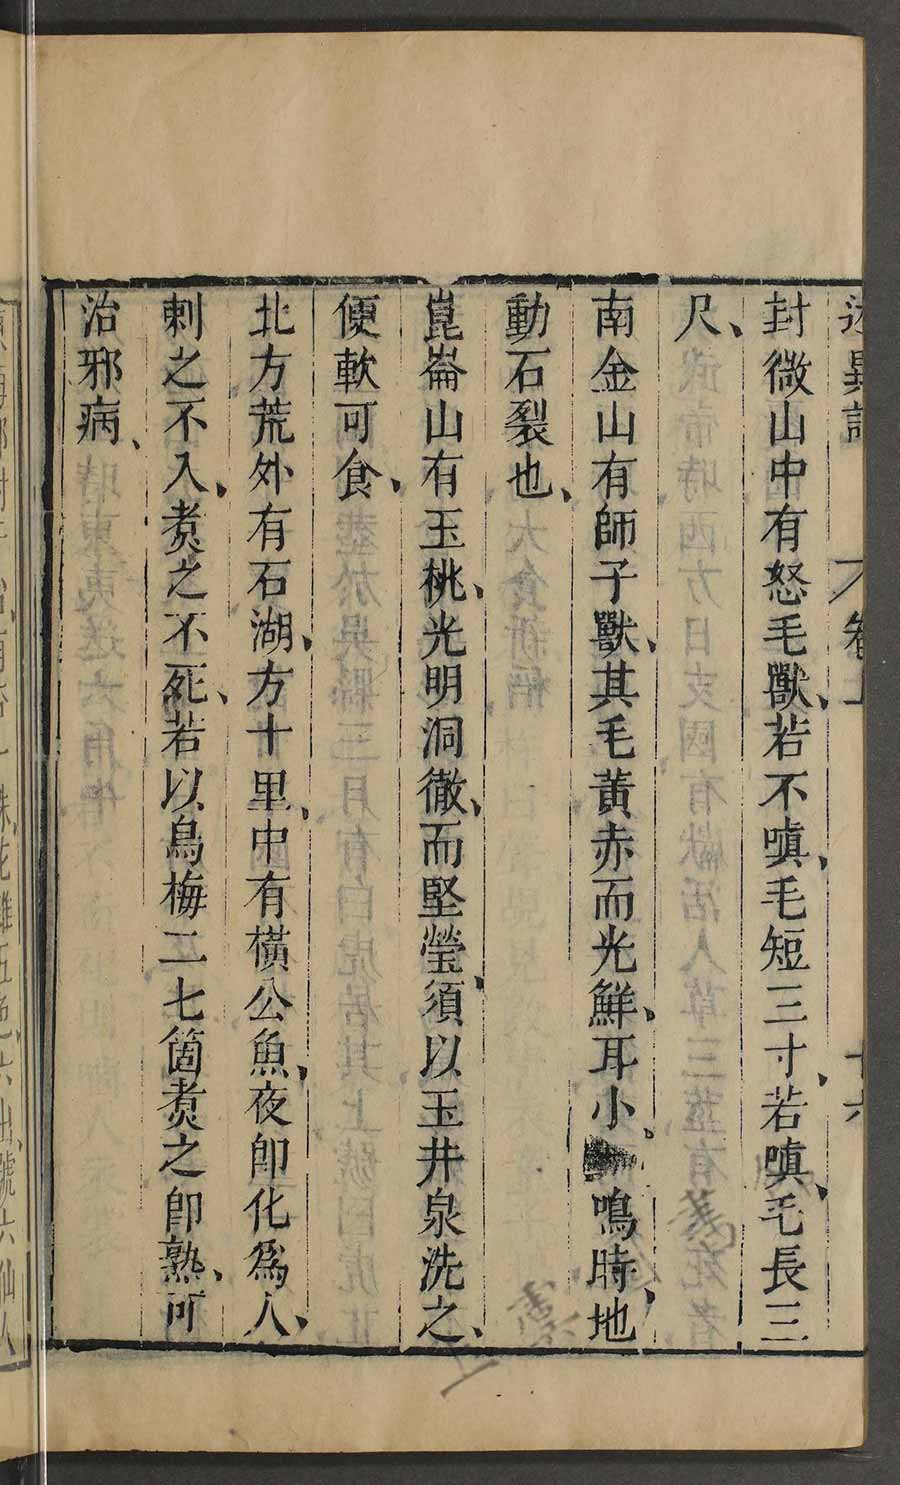 述異記 卷上 十六
封微山中有怒毛獸、若不嗔、毛短三寸、若嗔、毛長三
尺、
南金山有師子獸、其毛黃赤而光鮮、耳小、鳴時、地
動石裂也、
崑崙山有玉桃、光明洞徹、而堅瑩、須以玉井泉洗之、
便軟可食、
北方荒外有石湖、方十里、中有橫公魚、夜卽化爲人、
刺之不入、煑之不死、若以烏梅二七箇煑之卽熟、可
治邪病、